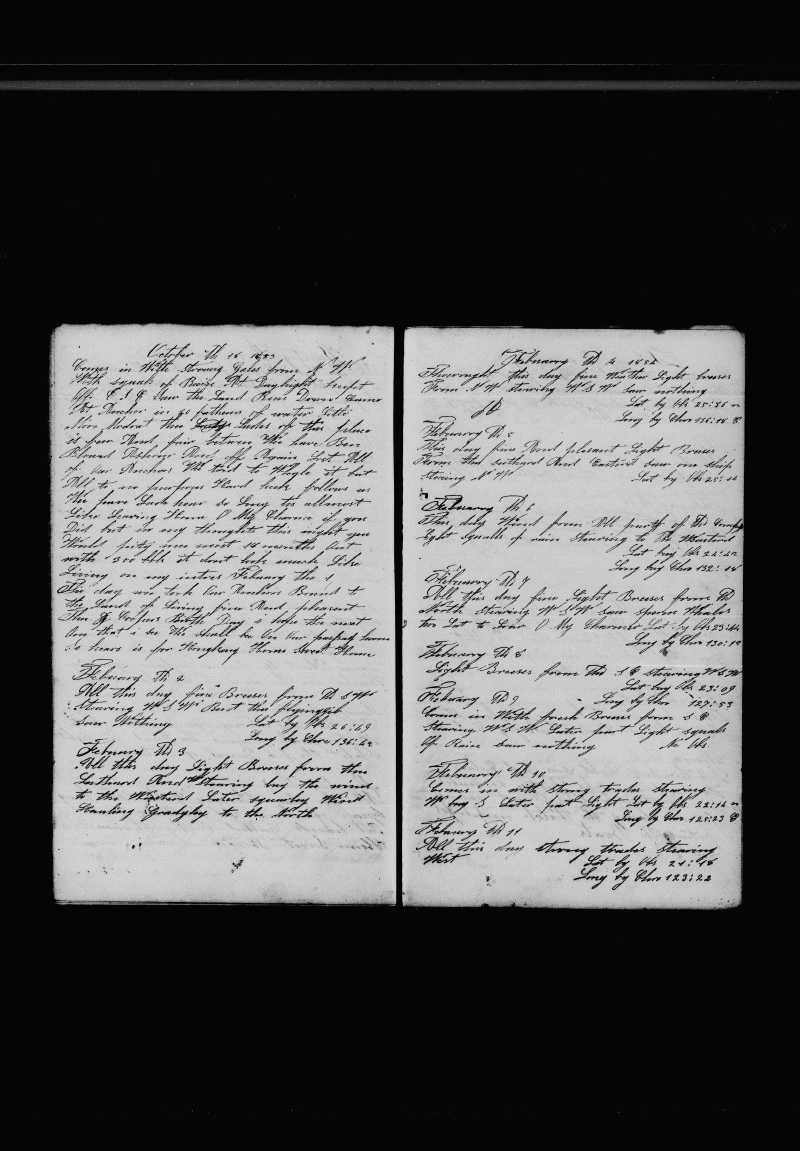 October Th 18 1853
Comes in With Strong Gales from N W
With squals of Rain At Daylight
off E S E Saw the Land Run Down Came
At Anchor in 30 fathoms of water Latter
More Moderat the Ladys Ladies of this place
is fair And fair between We have Ben
Blowed Off Again Lost All
of Our Anchors We tried to it but
All to no purpose Hard luck follows us
We have Luck now so Long tis allmost
Like Leaving Home O My Charmer if you
Did but no my thoughts this night you
Would pity me most 18 months Out
with 300 bbls it dont look much Like
Living on my intres Febuary the 1
This day we took Our Anchors Bound to
the Land of Living fine And pleasant
This is Day i hope the next
One that i se We shall be On Our passage home
So hears is for Hongkong Home Sweet Home
Febuary Th 2
All this day fine Breeses from Th S W
Stearing W S W Bent the flyingjib
Saw Nothing Lat by Obs 26:49
Long by Chro 136:42
Febuary Th 3
All this day Light Breeses from the
Southerd And Stearing by the wind
to the Westerd Later squaley Wind
Hauling Gradgley to the North
Febuary Th 4 1854
Throought this day fine Weather Light breeses
From N W stearing W S W saw nothing
Lat by Obs 25:56 n
Long by Chro 135:18 E
Febuary Th 5
This day fine And plesant Light Breeses
From the Sothered And Easterd saw one ship
stearing N W Lat by Obs 25:14
Febuary Th 6
This day Wind from All parts of Th Compass
Light squalls of rain Stearing to The Westerd
Lat by Obs 24:42
Long by Chro 132:18
Febuary Th 7
All this day fine Light Breeses from Th
North Stearing W S W Saw Sperm Whales
too Lat to Lour O My Charmer Lat by Obs 23:44
Long by Chro 130:19
Febuary Th 8
Light Breeses from The S E stearing W S W
Lat by Obs 23:09
Febuary Th 9 Long by Chro 127:53
Comes in With fresh Breeses from S E
Stearing W S W Later part Light squals
Of Rain saw nothing No Obs
Febuary Th 10
Comes in with strong trades stearing
W by S Later part Light Lat by Obs 22:14 n
Long by Chro 125:23 E
Febuary Th 11
All this day strong trades stearing
West Lat by Obs 21:18
Long by Chro 123:22